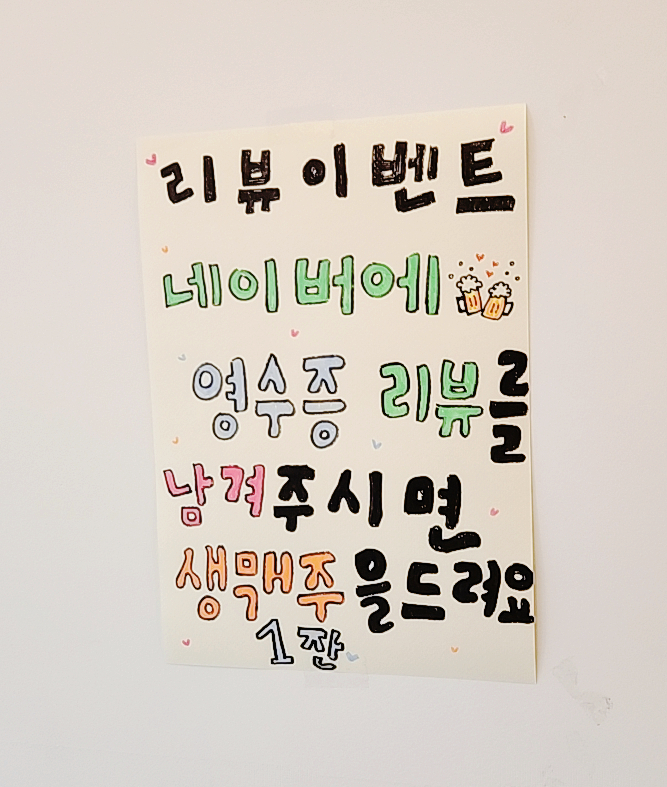 리뷰이벤트
네이버에
영수증 리뷰를
남겨주시면
생맥주을드려요
1잔